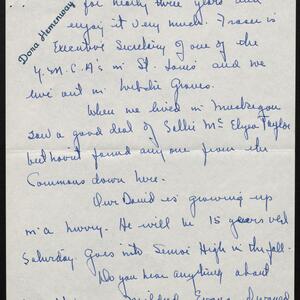 Dona Hemenway
for nearly three years and
enjoy it very much. Fraser is
Executive Secretary of one of the
Y.M.C.A's in St. Louis and we
live out in Webster Groves.
When we lived in Muskegon
saw a good deal of Sallie McElyea Taylor
but hav'nt found any one from the
Commons down here.
Our David is growing up
in a hurry. He will be 15 years old
Saturday. Goes into Senior High in the fall.
Do you hear anything about